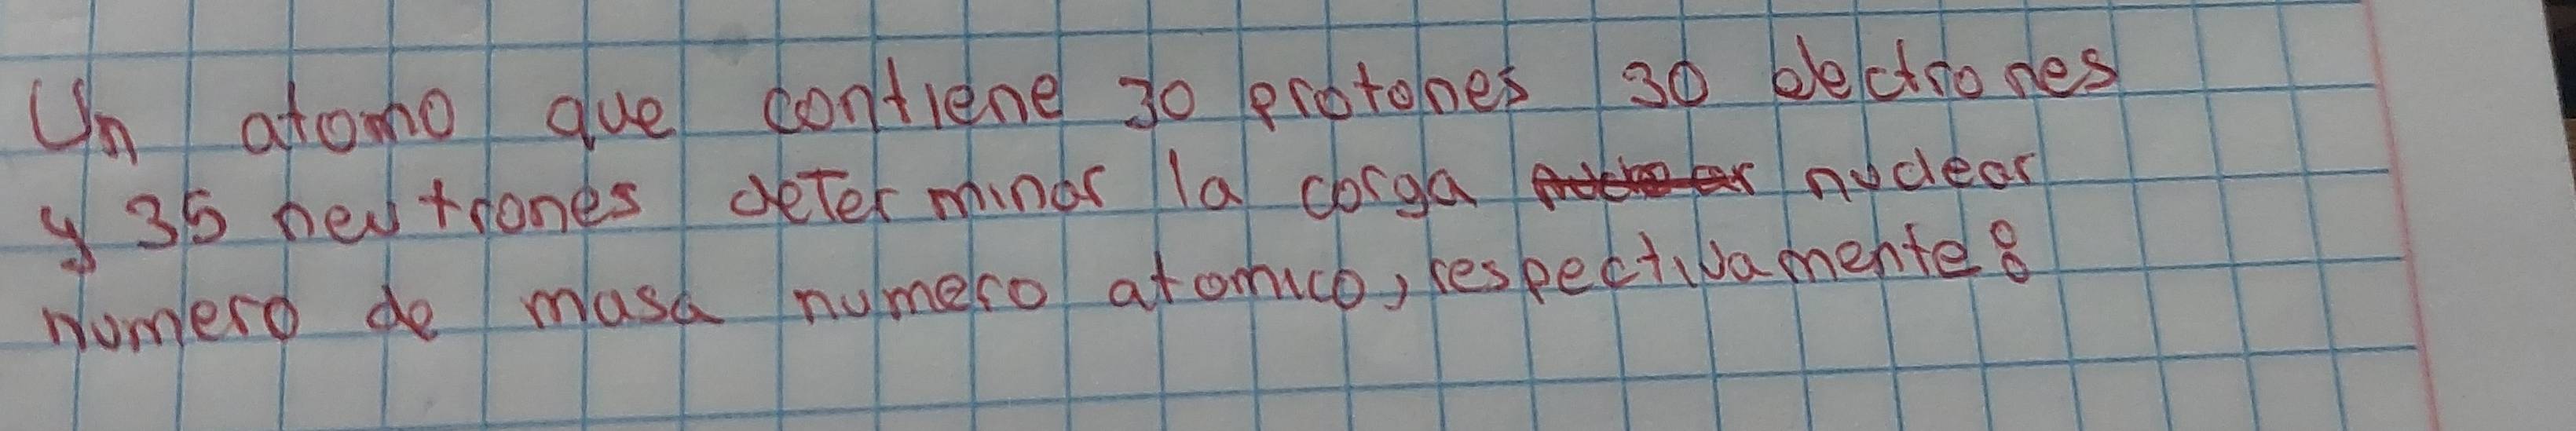 Un atomo que contiene 30 protones 30 electrones
y 35 neutrones determinar la carga nuclear
numero de masa numero atomico, respectivamente: